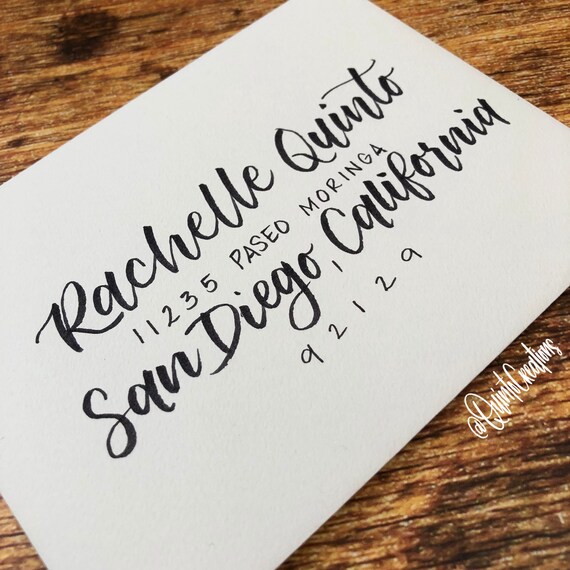 Rachelle Quinto
11235 PASEO MORINGA
San Diego, California
92129
@QuintoCreations